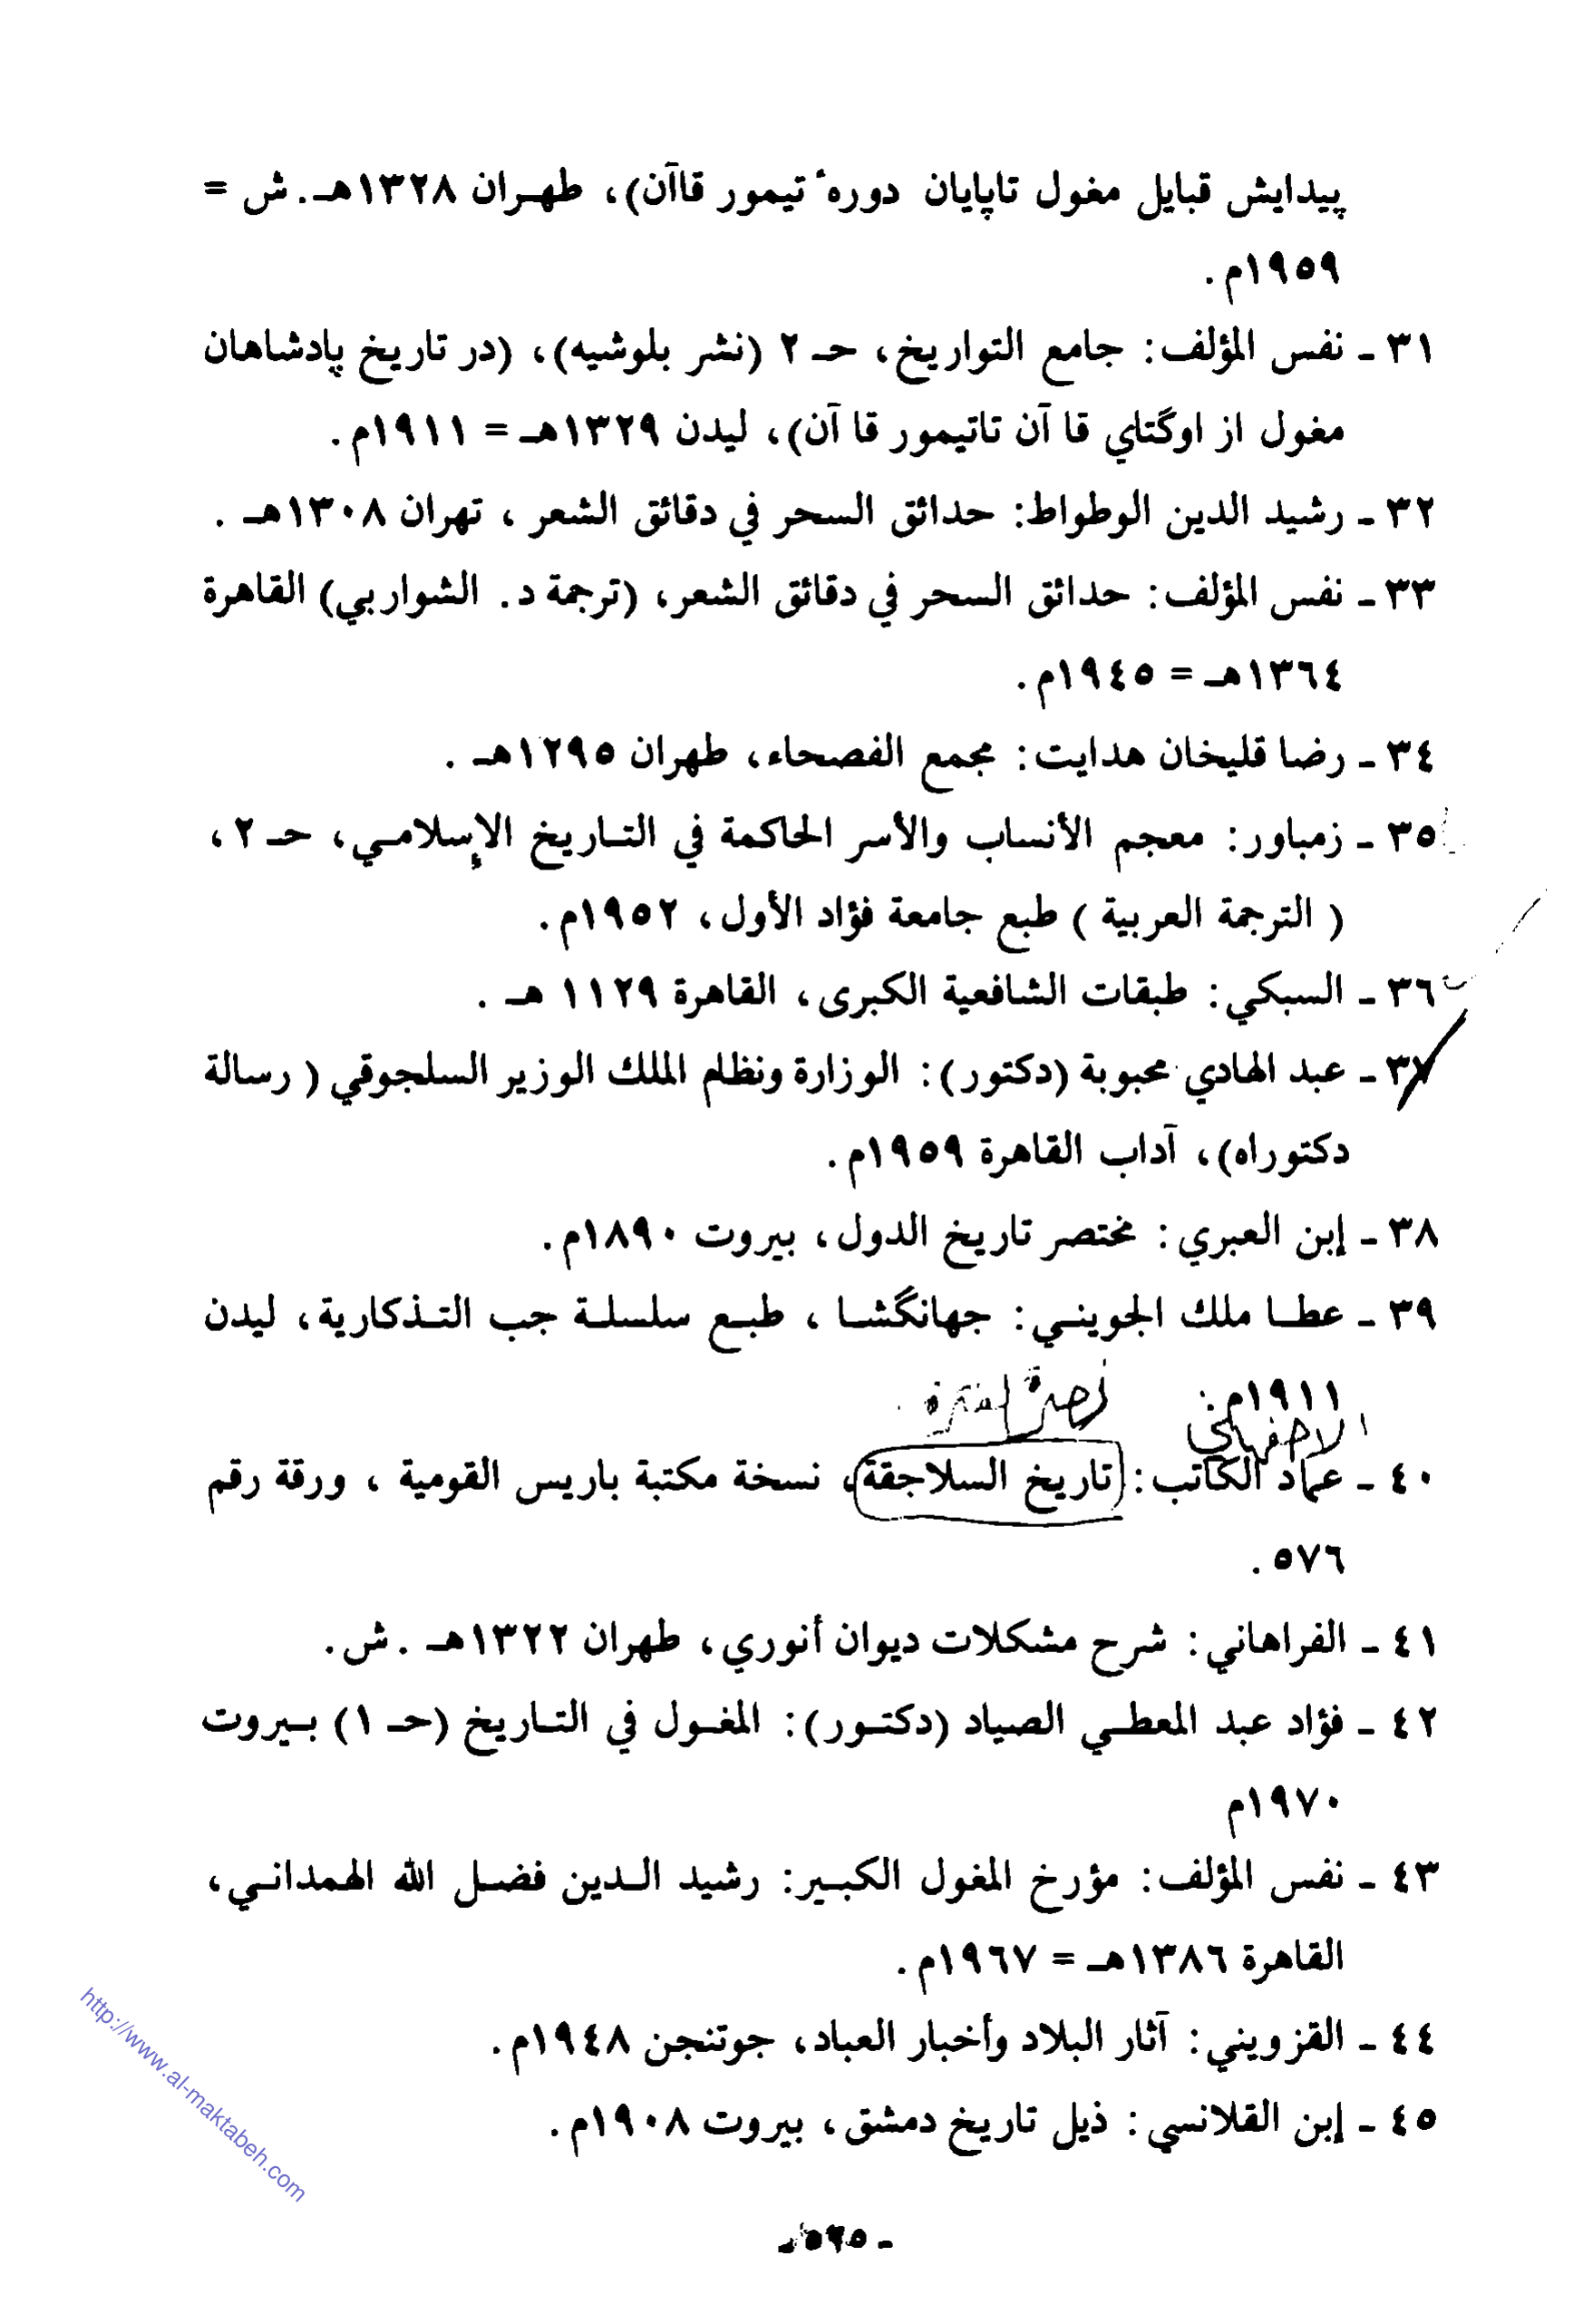 پيدايش قبايل مغول تاپايان دورهٔ تيمور قاآن)، طهـران ١٣٢٨هـ.ش =
١٩٥٩م.
٣١ ـ نفس المؤلف: جامع التواريخ، حـ ٢ (نشر بلوشيه)، (در تاريخ پادشاهان
مغول از اوگتاي قا آن تاتيمور قا آن)، ليدن ١٣٢٩هـ = ١٩١١م.
٣٢ ـ رشيد الدين الوطواط: حدائق السحر في دقائق الشعر ، تهران ١٣٠٨هـ .
٣٣ ـ نفس المؤلف: حدائق السحر في دقائق الشعر، (ترجمة د. الشواربي) القاهرة
١٣٦٤هـ = ١٩٤٥م.
٣٤ ـ رضا قليخان هدايت: مجمع الفصحاء، طهران ١٢٩٥هـ .
٣٥ ـ زمباور: معجم الأنساب والأسر الحاكمة في التـاريخ الإسلامـي، حـ ٢ ،
( الترجمة العربية ) طبع جامعة فؤاد الأول، ١٩٥٢م.
٣٦ ـ السبكي: طبقات الشافعية الكبرى، القاهرة ١١٢٩ هـ .
٣٧ ـ عبد الهادي محبوبة (دكتور): الوزارة ونظام الملك الوزير السلجوقي ( رسالة
دكتوراه)، آداب القاهرة ١٩٥٩م.
٣٨ ـ إبن العبري: مختصر تاريخ الدول، بيروت ١٨٩٠م.
٣٩ ـ عطـا ملك الجوينـي: جهانگشـا ، طبـع سلسلـة جب التـذكارية، ليدن
١٩١١م. نصرة الفترة
الاصفهاني
٤٠ ـ عماد الكاتب: تاريخ السلاجقة، نسخة مكتبة باريس القومية ، ورقة رقم
٥٧٦ .
٤١ ـ الفراهاني: شرح مشكلات ديوان أنوري، طهران ١٣٢٢هـ .ش.
٤٢ ـ فؤاد عبد المعطـي الصياد (دكتـور): المغـول في التـاريخ (حـ ١) بـيروت
١٩٧٠م
٤٣ ـ نفس المؤلف: مؤرخ المغول الكبـير: رشيد الـدين فضـل الله الهمدانـي،
القاهرة ١٣٨٦هـ = ١٩٦٧م.
٤٤ ـ القزويني: آثار البلاد وأخبار العباد، جوتنجن ١٩٤٨م.
٤٥ ـ إبن القلانسي: ذيل تاريخ دمشق، بيروت ١٩٠٨م.
http://www.al-maktabeh.com